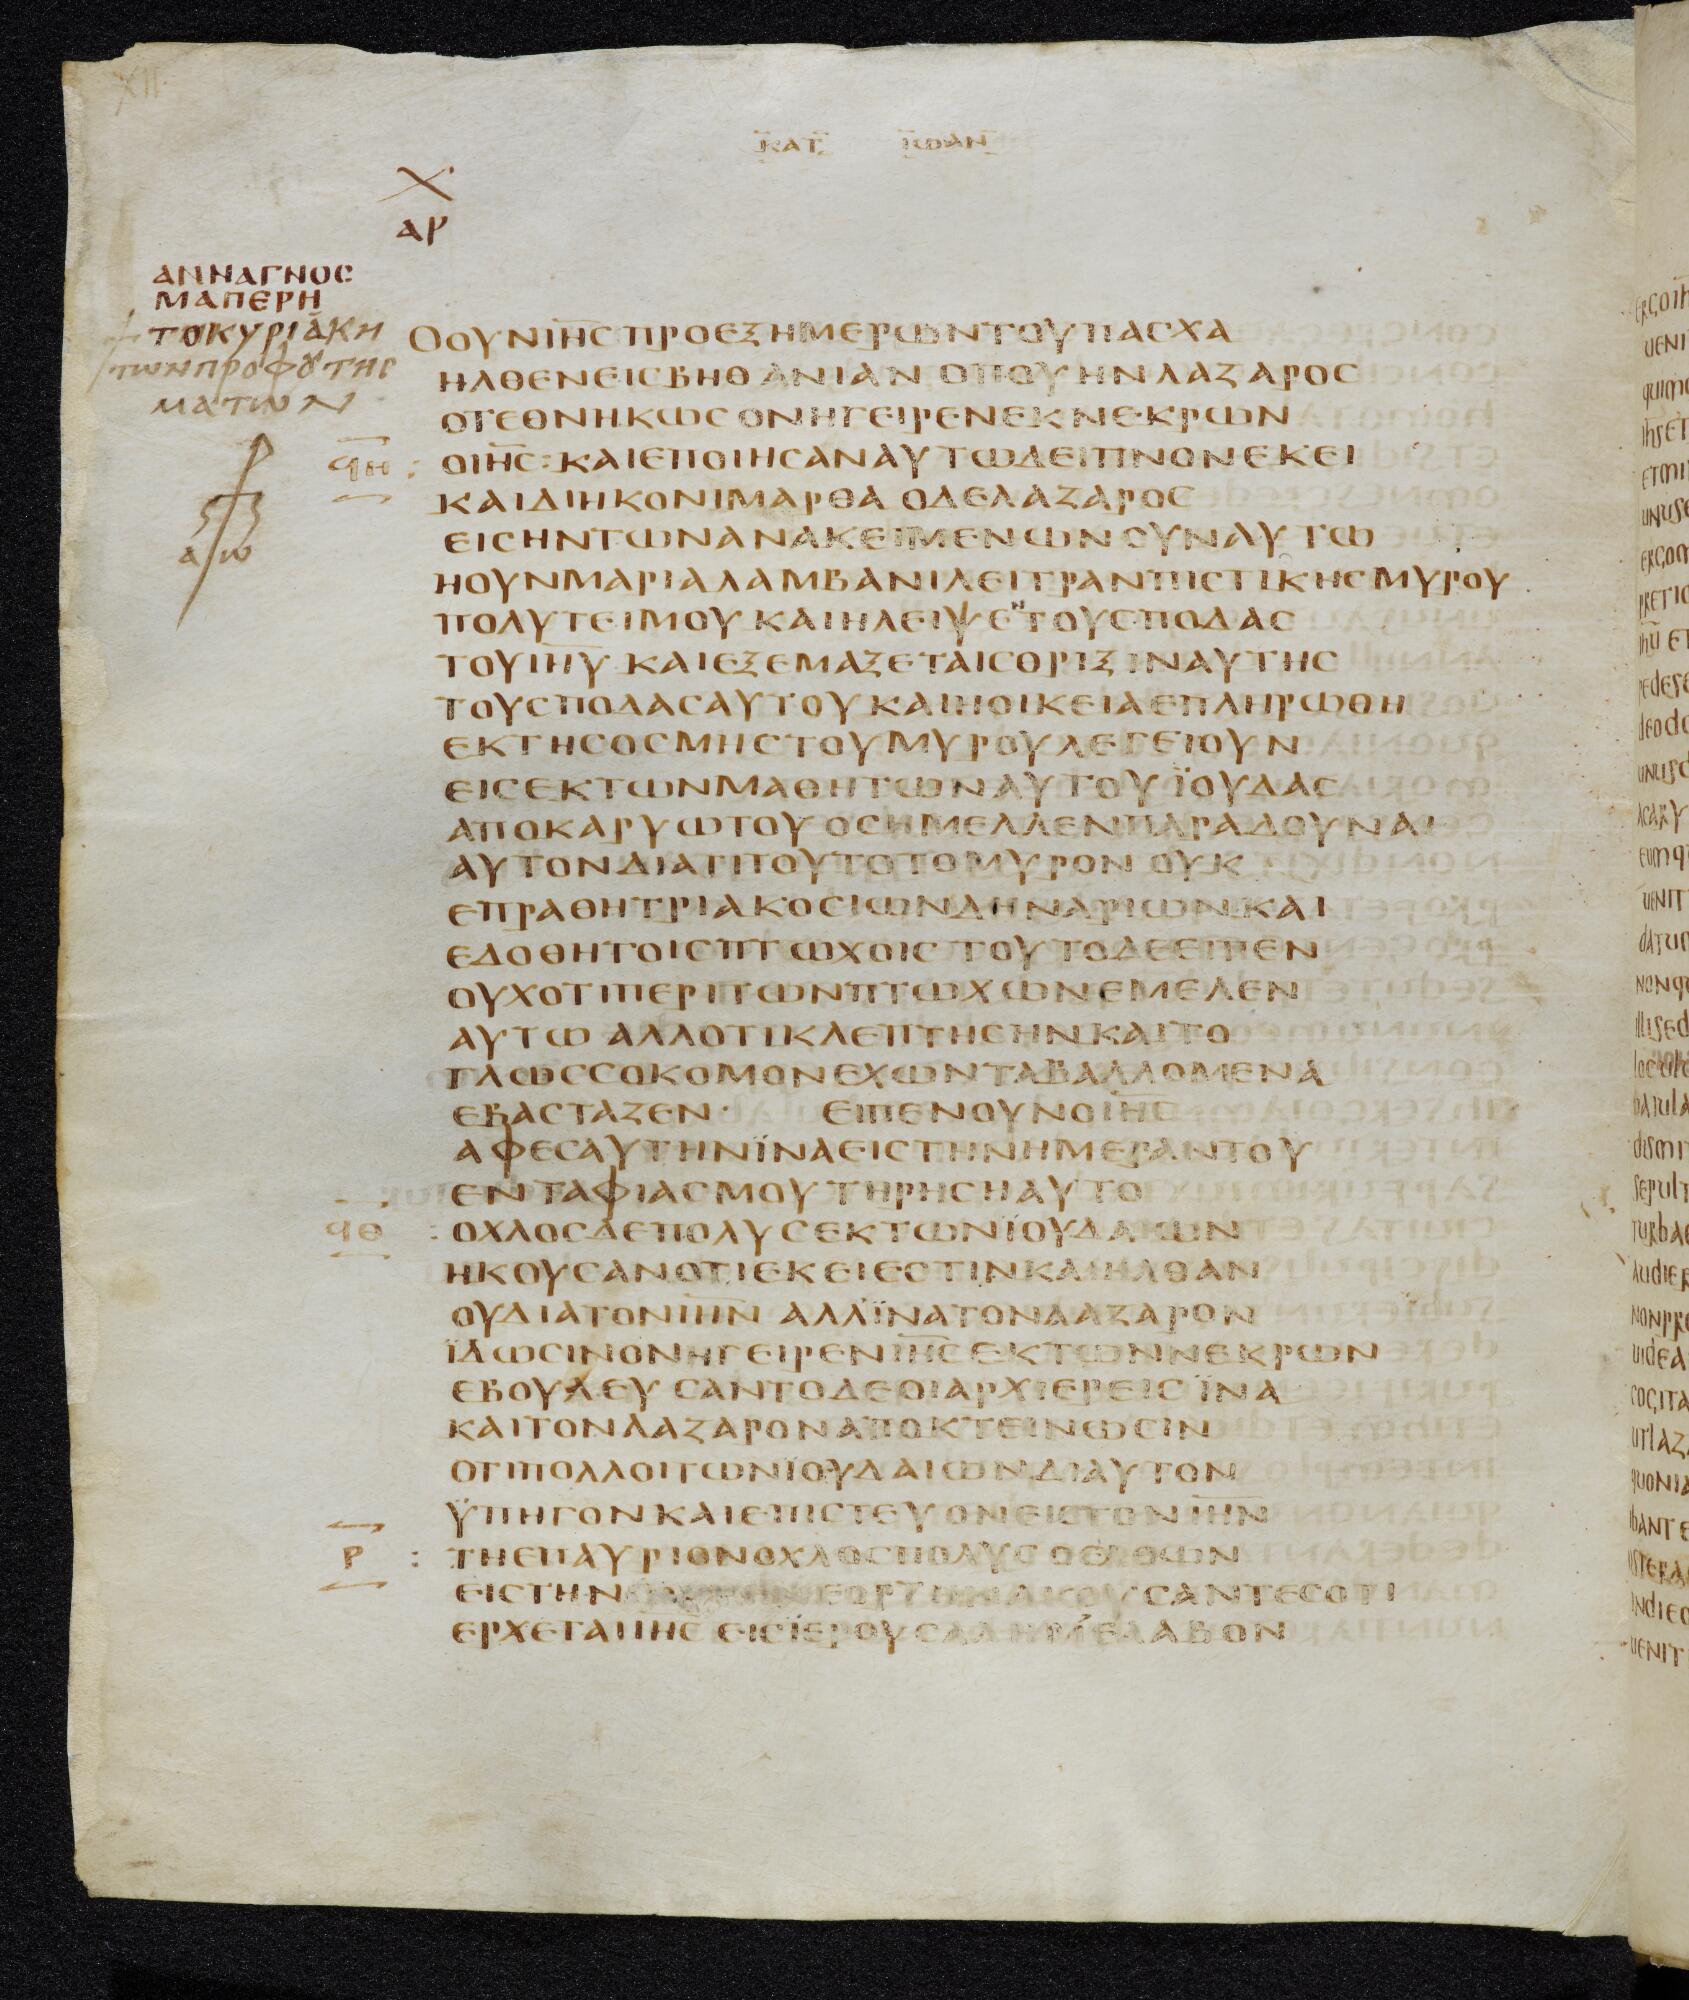 ΧΙΙ
ΚΑΤ ΙΩΑΝ
Χ
ΑΡ
ΑΝΝΑΓΝΟС
ΜΑΠΕΡΗ
ΤΟΚΥΡΙΑΚΗ
ΤωΝΠΡΟΦΥΤΗС
ΜΑΤωΝ
ΟΟΥΝΙΗСΠΡΟΕΞΗΜΕΡωΝΤΟΥΠΑСΧΑ
ΗΛΘΕΝΕΙСΒΗΘΑΝΙΑΝ ΟΠΟΥΗΝΛΑΖΑΡΟС
ΟΤΕΘΝΗΚωС ΟΝΗΓΕΙΡΕΝΕΚΝΕΚΡωΝ
ϤΗ : ΟΙΗС: ΚΑΙΕΠΟΙΗСΑΝΑΥΤωΔΕΙΠΝΟΝΕΚΕΙ
ΚΑΙΔΙΗΚΟΝΙΜΑΡΘΑ ΟΔΕΛΑΖΑΡΟС
ΕΙСΗΝΤωΝΑΝΑΚΕΙΜΕΝωΝСΥΝΑΥΤω
ΗΟΥΝΜΑΡΙΑΛΑΜΒΑΝΙΛΕΙΤΡΑΝΠΙСΤΙΚΗСΜΥΡΟΥ
ΠΟΛΥΤΕΙΜΟΥΚΑΙΗΛΕΙΨΕΝΤΟΥСΠΟΔΑС
ΤΟΥΙΗΥ ΚΑΙΕΞΕΜΑΞΕΤΑΙСΘΡΙΞΙΝΑΥΤΗС
ΤΟΥСΠΟΔΑСΑΥΤΟΥΚΑΙΗΟΙΚΕΙΑΕΠΛΗΡωΘΗ
ΕΚΤΗСΟСΜΗСΤΟΥΜΥΡΟΥΛΕΓΕΙΟΥΝ
ΕΙСΕΚΤωΝΜΑΘΗΤωΝΑΥΤΟΥΪΟΥΔΑС
ΑΠΟΚΑΡΥωΤΟΥ ΟСΗΜΕΛΛΕΝΠΑΡΑΔΟΥΝΑΙ
ΑΥΤΟΝΔΙΑΤΙΤΟΥΤΟΤΟΜΥΡΟΝ ΟΥΚ
ΕΠΡΑΘΗΤΡΙΑΚΟСΙωΝΔΗΝΑΡΙωΝΚΑΙ
ΕΔΟΘΗΤΟΙСΠΤωΧΟΙС ΤΟΥΤΟΔΕΕΙΠΕΝ
ΟΥΧΟΤΙΠΕΡΙΤωΝΠΤωΧωΝΕΜΕΛΕΝ
ΑΥΤω ΑΛΛΟΤΙΚΛΕΠΤΗСΗΝΚΑΙΤΟ
ΓΛωССΟΚΟΜΟΝΕΧωΝΤΑΒΑΛΛΟΜΕΝΑ
ΕΒΑСΤΑΖΕΝ· ΕΙΠΕΝΟΥΝΟΙΗС
ΑΦΕСΑΥΤΗΝΪΝΑΕΙСΤΗΝΗΜΕΡΑΝΤΟΥ
ΕΝΤΑΦΙΑСΜΟΥΤΗΡΗСΗΑΥΤΟ
ϤΘ : ΟΧΛΟСΔΕΠΟΛΥСΕΚΤωΝΪΟΥΔΑΙωΝ
ΗΚΟΥСΑΝΟΤΙΕΚΕΙΕСΤΙΝΚΑΙΗΛΘΑΝ
ΟΥΔΙΑΤΟΝΙΗΝ ΑΛΛΪΝΑΤΟΝΛΑΖΑΡΟΝ
ΪΔωСΙΝΟΝΗΓΕΙΡΕΝΙΗСΕΚΤωΝΝΕΚΡωΝ
ΕΒΟΥΛΕΥСΑΝΤΟΔΕΟΙΑΡΧΙΕΡΕΙСΪΝΑ
ΚΑΙΤΟΝΛΑΖΑΡΟΝΑΠΟΚΤΕΙΝωСΙΝ
ΟΤΙΠΟΛΛΟΙΤωΝΪΟΥΔΑΙωΝΔΙΑΥΤΟΝ
ΫΠΗΓΟΝΚΑΙΕΠΙСΤΕΥΟΝΕΙСΤΟΝΙΗΝ
Ρ : ΤΗΕΠΑΥΡΙΟΝΟΧΛΟСΠΟΛΥСΟΕΛΘωΝ
ΕΙСΤΗΝ ΕΟΡΤΗΝΑΚΟΥСΑΝΤΕСΟΤΙ
ΕΡΧΕΤΑΙΙΗС ΕΙСΪΕΡΟΥСΑΛΗΜΕΛΑΒΟΝ
Α ω